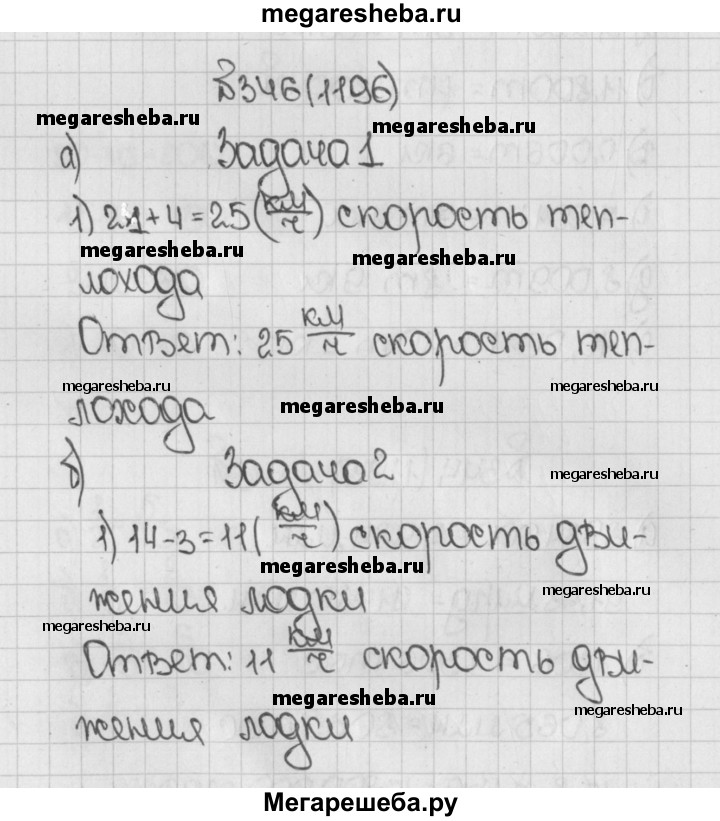 megaresheba.ru
№346(1196)
megaresheba.ru
megaresheba.ru
а) Задача 1
1) 21+4=25(км/ч) скорость теп-
megaresheba.ru
megaresheba.ru
лохода
Ответ: 25 км/ч скорость теп-
megaresheba.ru
megaresheba.ru
лохода
megaresheba.ru
б) Задача 2
megaresheba.ru
1) 14-3=11(км/ч) скорость дви-
megaresheba.ru
жения лодки
megaresheba.ru
megaresheba.ru
Ответ: 11 км/ч скорость дви-
megaresheba.ru
megaresheba.ru
жения лодки
Мегарешеба.ру